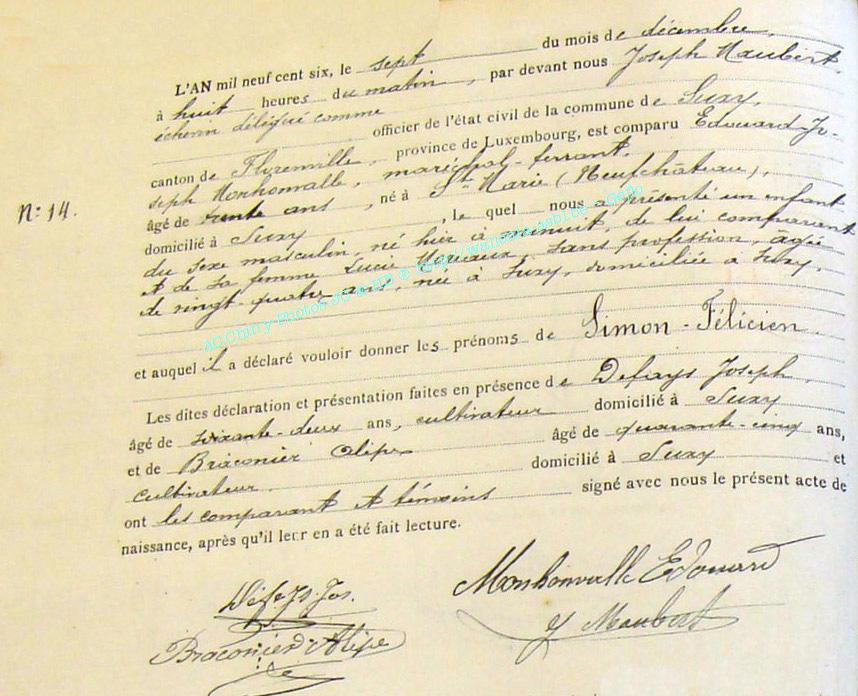 L'AN mil neuf cent six, le sept du mois de décembre,
à huit heures du matin, par devant nous Joseph Maubert,
échevin délégué comme officier de l'état civil de la commune de Suxy,
canton de Florenville, province de Luxembourg, est comparu Edouard-Jo-
seph Monhonvalle, maréchal-ferrant,
âgé de trente ans, né à Ste Marie (Neufchâteau),
N: 14.
domicilié à Suxy, le quel nous a présenté un enfant
du sexe masculin, né hier à minuit, de lui comparant
et de sa femme Lucie sans profession, âgée
de vingt-quatre ans, née à Suxy, domiciliée à Suxy,
et auquel il a déclaré vouloir donner les prénoms de Simon-Félicien.
Les dites déclaration et présentation faites en présence de Defays Joseph,
âgé de soixante-deux ans, cultivateur domicilié à Suxy
et de Braconier Alipe âgé de quarante-cinq ans,
cultivateur domicilié à Suxy et
ont les comparant et témoins signé avec nous le présent acte de
naissance, après qu'il leur en a été fait lecture.
Défays Jos.
Monhonvalle Edouard
Braconier Alipe
J Maubert